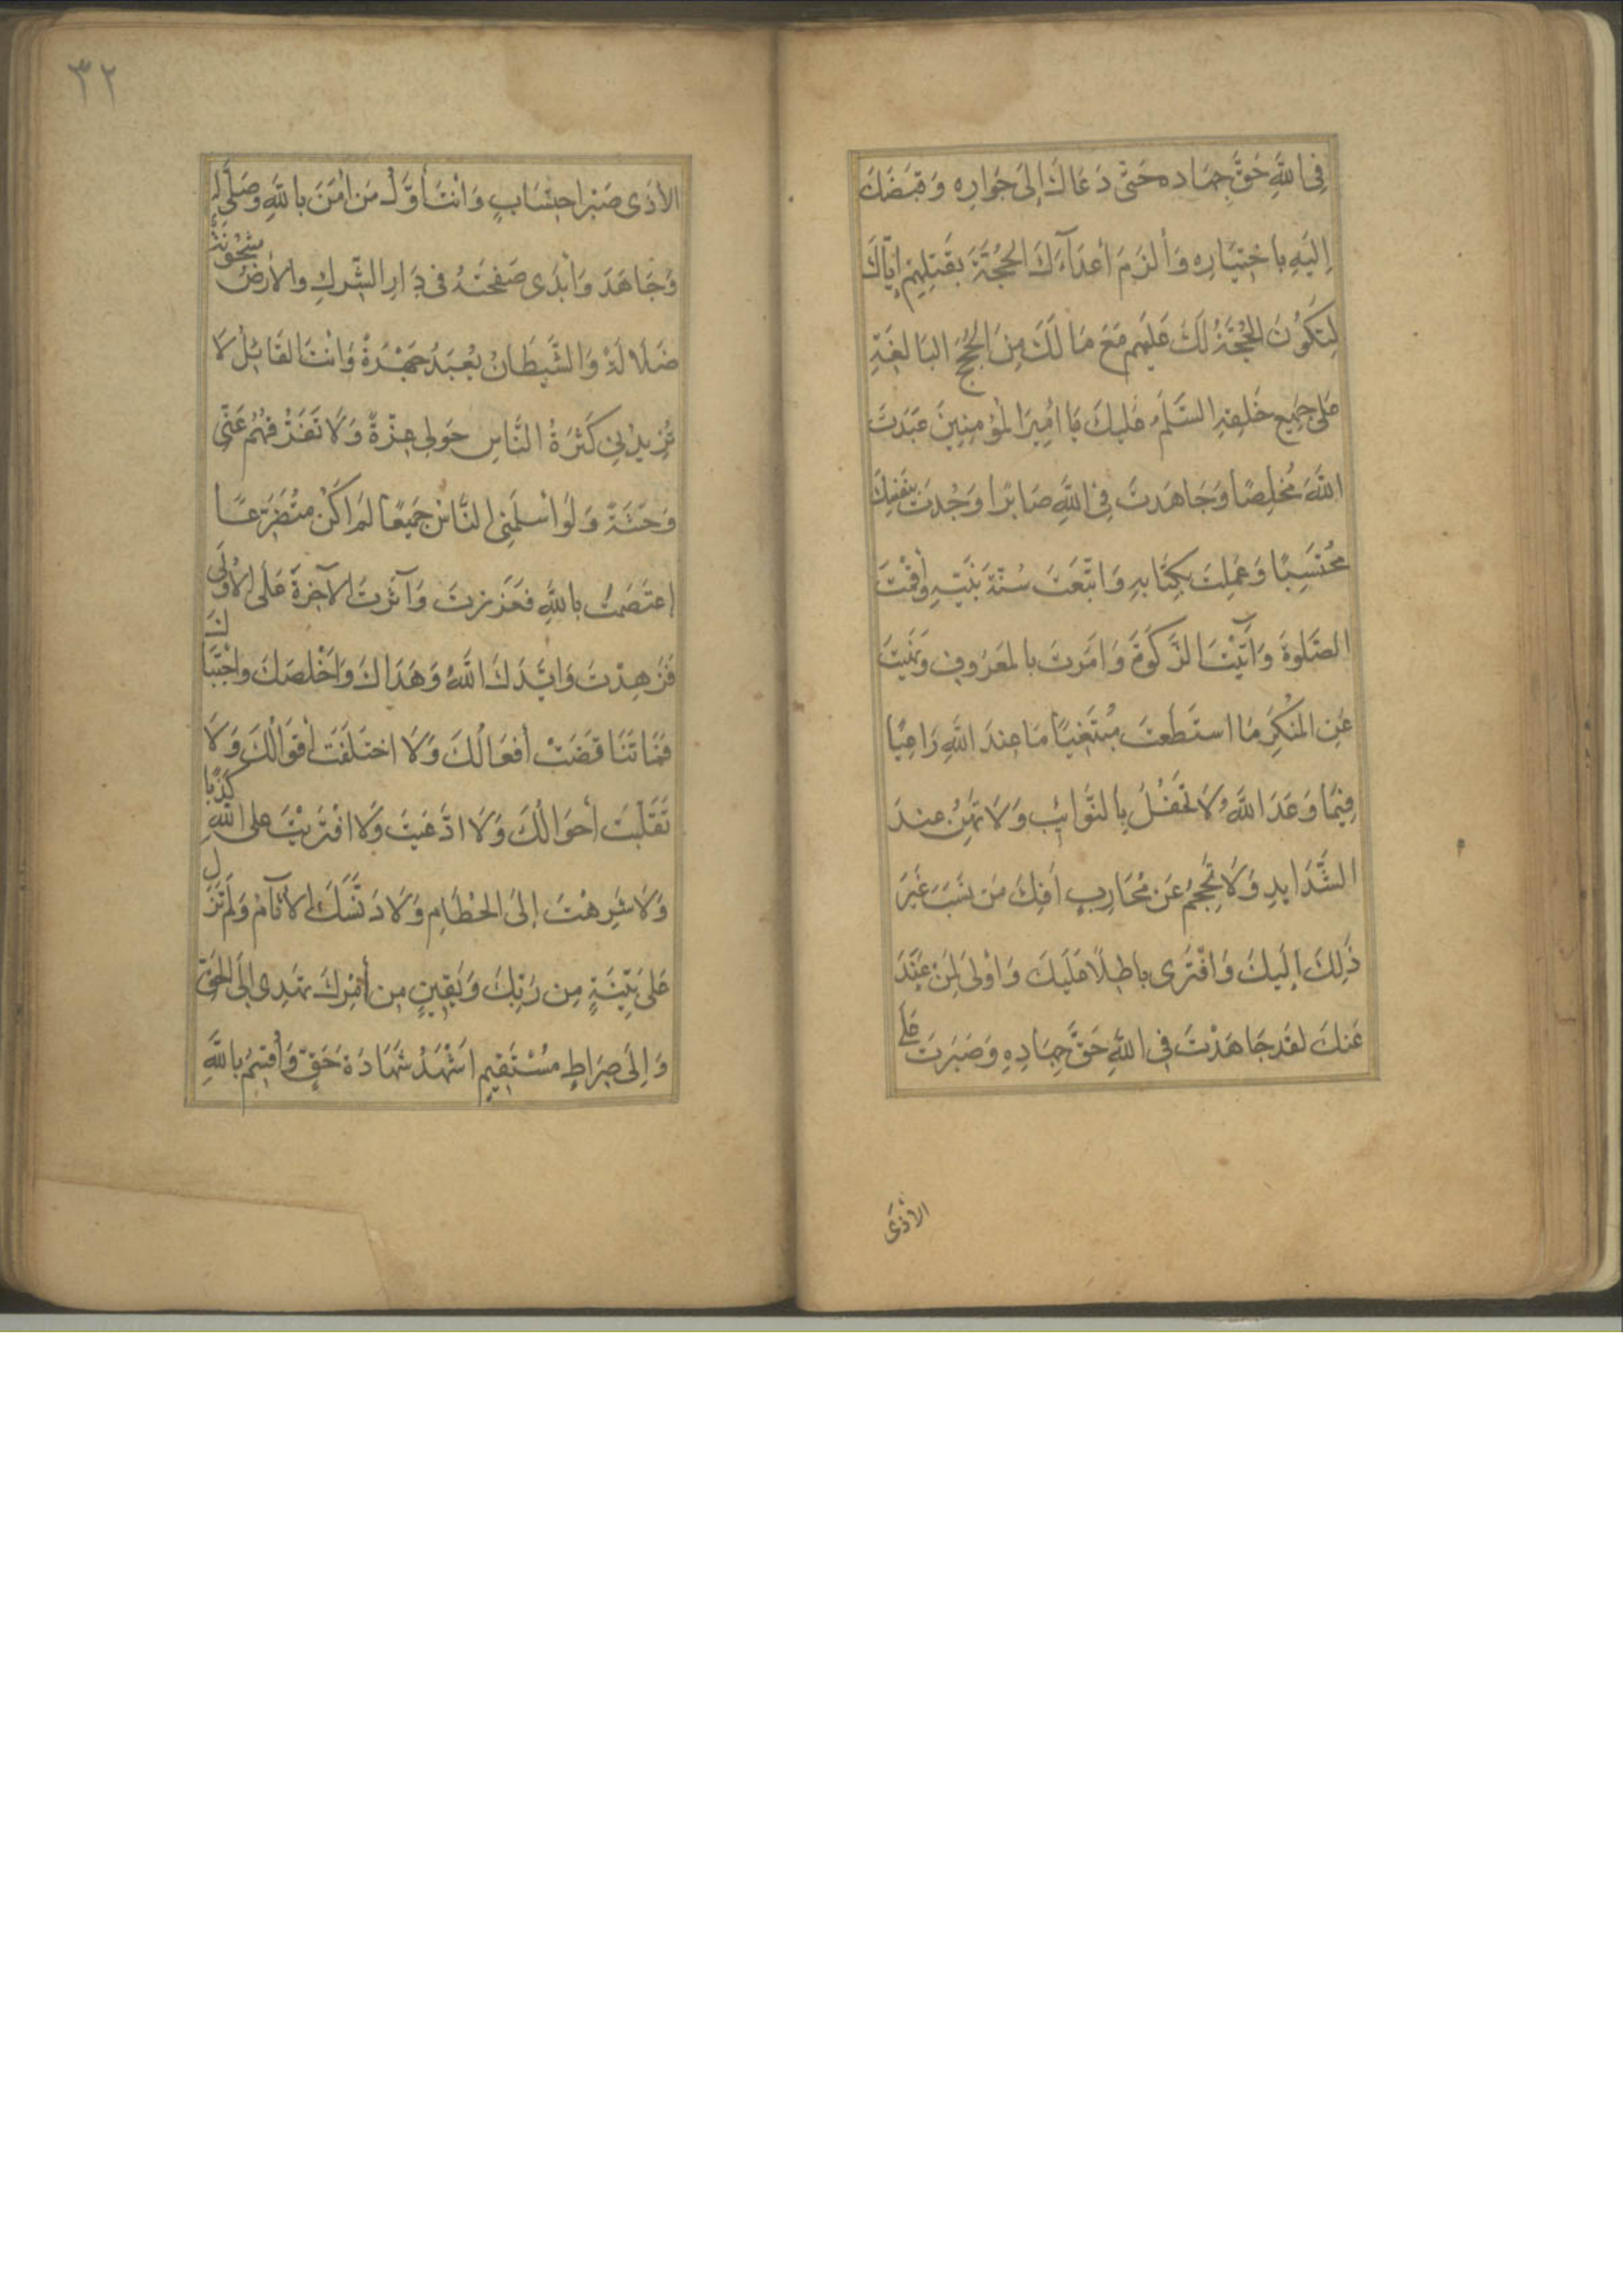 فِي اللَّهِ حَقَّ جِهَادِهِ حَتَّى دَعَاكَ إِلَى جَوَارِهِ وَقَبَضَكَ
إِلَيْهِ بِاخْتِيَارِهِ وَأَلْزَمَ أَعْدَآءَكَ الحُجَّةَ بِقَتْلِهِمْ إِيَّاكَ
لِتَكُونَ الحُجَّةُ لَكَ عَلَيهِم مَعَ مَا لَكَ مِنَ الْحُجَجِ البَالِغَةِ
عَلَى جَمِيعِ خَلْقِهِ السَّلَمُ عَلَيكَ يَا امِيرَ الْمُؤمِنِينَ عَبَدتَ
اللَّهَ مُخْلِصًا وَجَاهَدتَ فِي اللَّهِ صَابِرًا وَجُدتَ بِنَفْسِكَ
مُحْتَسِبًا وَعَمِلتَ بِكِتَابِهِ وَاتَّبَعْتَ سُنَّةَ نَبِيِّهِ وَأَقَمْتَ
الصَّلَوةَ وَآتَيْتَ الزَّكَوةَ وَامَرتَ بِالْمَعرُوفِ وَنَهَيْتَ
عَنِ المُنْكَرِ مَا استَطَعتَ مُبْتَغِيًا مَا عِندَ اللَّهِ رَاغِبًا
فِيمَا وَعَدَ اللَّهُ لَا تَحْفَلُ بِالنَّوَائِبِ وَلَا تَهِنُ عِندَ
الشَّدَايِدِ وَلَا تُحْجِمُ عَن مُحَارِبٍ أَفِكَ مَن نَسَبَ غَيرَ
ذَلِكَ إِلَيكَ وَافْتَرَى بَاطِلًا عَلَيكَ وَاوْلَى لِمَنْ عَنَدَ
عَنكَ لَقَد جَاهَدْتَ فِي اللَّهِ حَقَّ جِهَادِهِ وَصَبَرتَ عَلَى
الأَذَى
٣٢
الأَذَى صَبْرَ احتِسَابٍ وَانْتَ أَوَّلُ مَن امَنَ بِاللَّهِ وَصَلَّى لَهُ
وَجَاهَدَ وَابْدَى صَفْحَتَهُ فِي دَارِ الشِّركِ وَالأَرضُ مَشْحُونَةٌ
ضَلَالَةً وَالشَّيطَانُ يُعْبَدُ جَهْرَةً وَانْتَ القَائِلُ لَا
تَزِيدُنِي كَثْرَةُ النَّاسِ حَولِي عِزَّةً وَلَا تَفَرُّقُهُم عَنِّي
وَحْشَةً وَلَو اسْلَمَنِي النَّاسُ جَمِيعًا لَم اَكُنْ مُتَضَرِّعًا
اعتَصَمتَ بِاللَّهِ فَعَزَزتَ وَآثَرتَ الآخِرَةَ عَلَى الأُولَى
فَزَهِدْتَ وَايَّدَكَ اللَّهُ وَهَدَاكَ وَاَخْلَصَكَ وَاجْتَبَاكَ
فَمَا تَنَاقَضَتْ أَفعَالُكَ وَلَا اختَلَفَت أَقوَالُكَ وَلَا
تَقَلَّبَت أَحوَالُكَ وَلَا ادَّعَيتَ وَلَا افْتَرَيْتَ عَلَى اللَّهِ كَذِبًا
وَلَا شَرِهْتَ إِلَى الحُطَامِ وَلَا دَنَّسَكَ الأَثَامُ وَلَم تَزَل
عَلَى بَيِّنَةٍ مِن رَبِّكَ وَيَقِينٍ مِن أَمْرِكَ تَهدِي إِلَى الحَقِّ
وَاِلَى صِرَاطٍ مُسْتَقِيمٍ اَشْهَدُ شَهَادَةَ حَقٍّ وَأُقسِمُ بِاللَّهِ